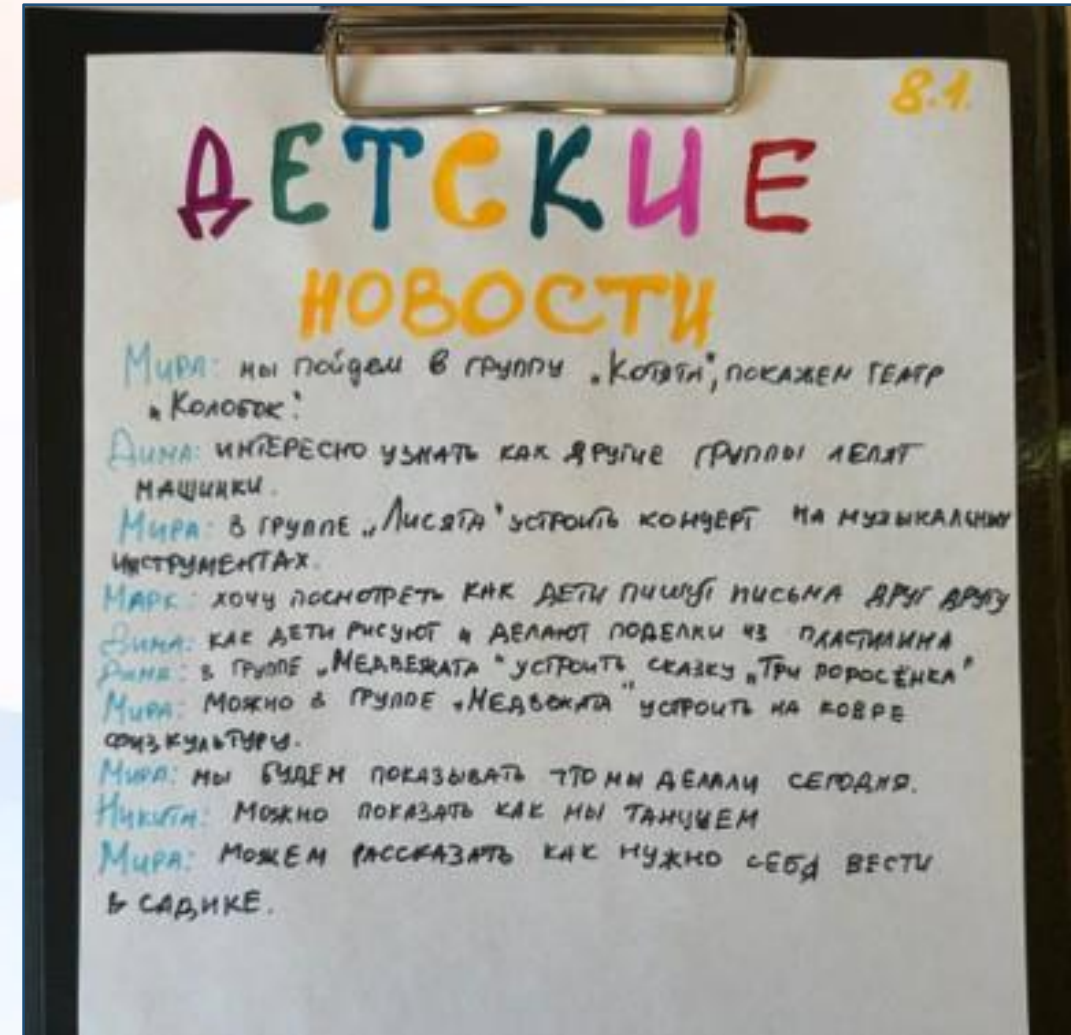 8.1.
ДЕТСКИЕ
НОВОСТИ
Мира: мы пойдем в группу „Котята“, покажем театр
„Колобок“.
Дима: интересно узнать как другие группы лепят
машинки.
Мира: в группе „Лисята“ устроить концерт на музыкальных
инструментах.
Марк: хочу посмотреть как дети пишут письма друг другу
Дима: как дети рисуют и делают поделки из пластилина
Дима: в группе „Медвежата“ устроить сказку „Три поросёнка“
Мира: Можно в группе „Медвежата“ устроить на ковре
физкультуру.
Мира: мы будем показывать что мы делали сегодня.
Никита: Можно показать как мы танцуем
Мира: Можем рассказать как нужно себя вести
в садике.